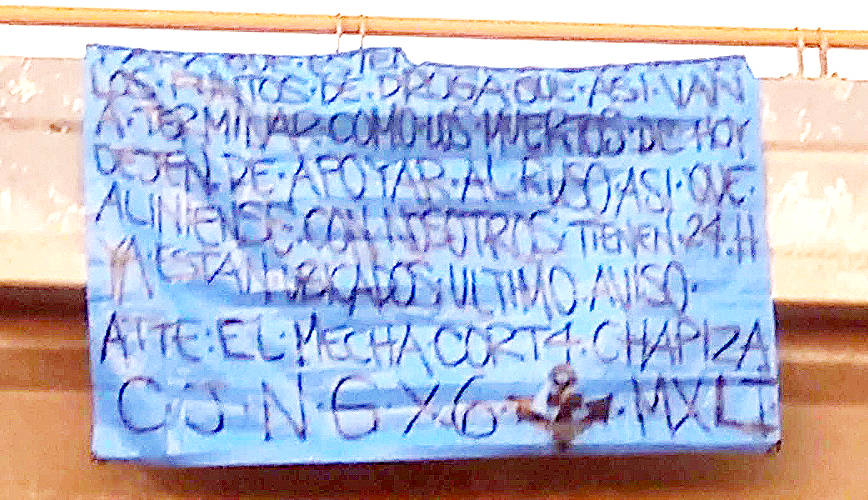 LOS PUNTOS·DE·DROGA·QUE·ASI·VAN
A·TERMINAR·COMO·LOS·MUERTOS·DE·HOY
DEJEN·DE·APOYAR·AL·RUSO,ASI·QUE·
ALINIENSE·CON·NOSOTROS·TIENEN·24·H
YA·ESTAN·UBICADOS·ULTIMO·AVISO·
ATTE·EL·MECHA CORT4·CHAPIZA
C·J·N·G Y·6· ·MXLI